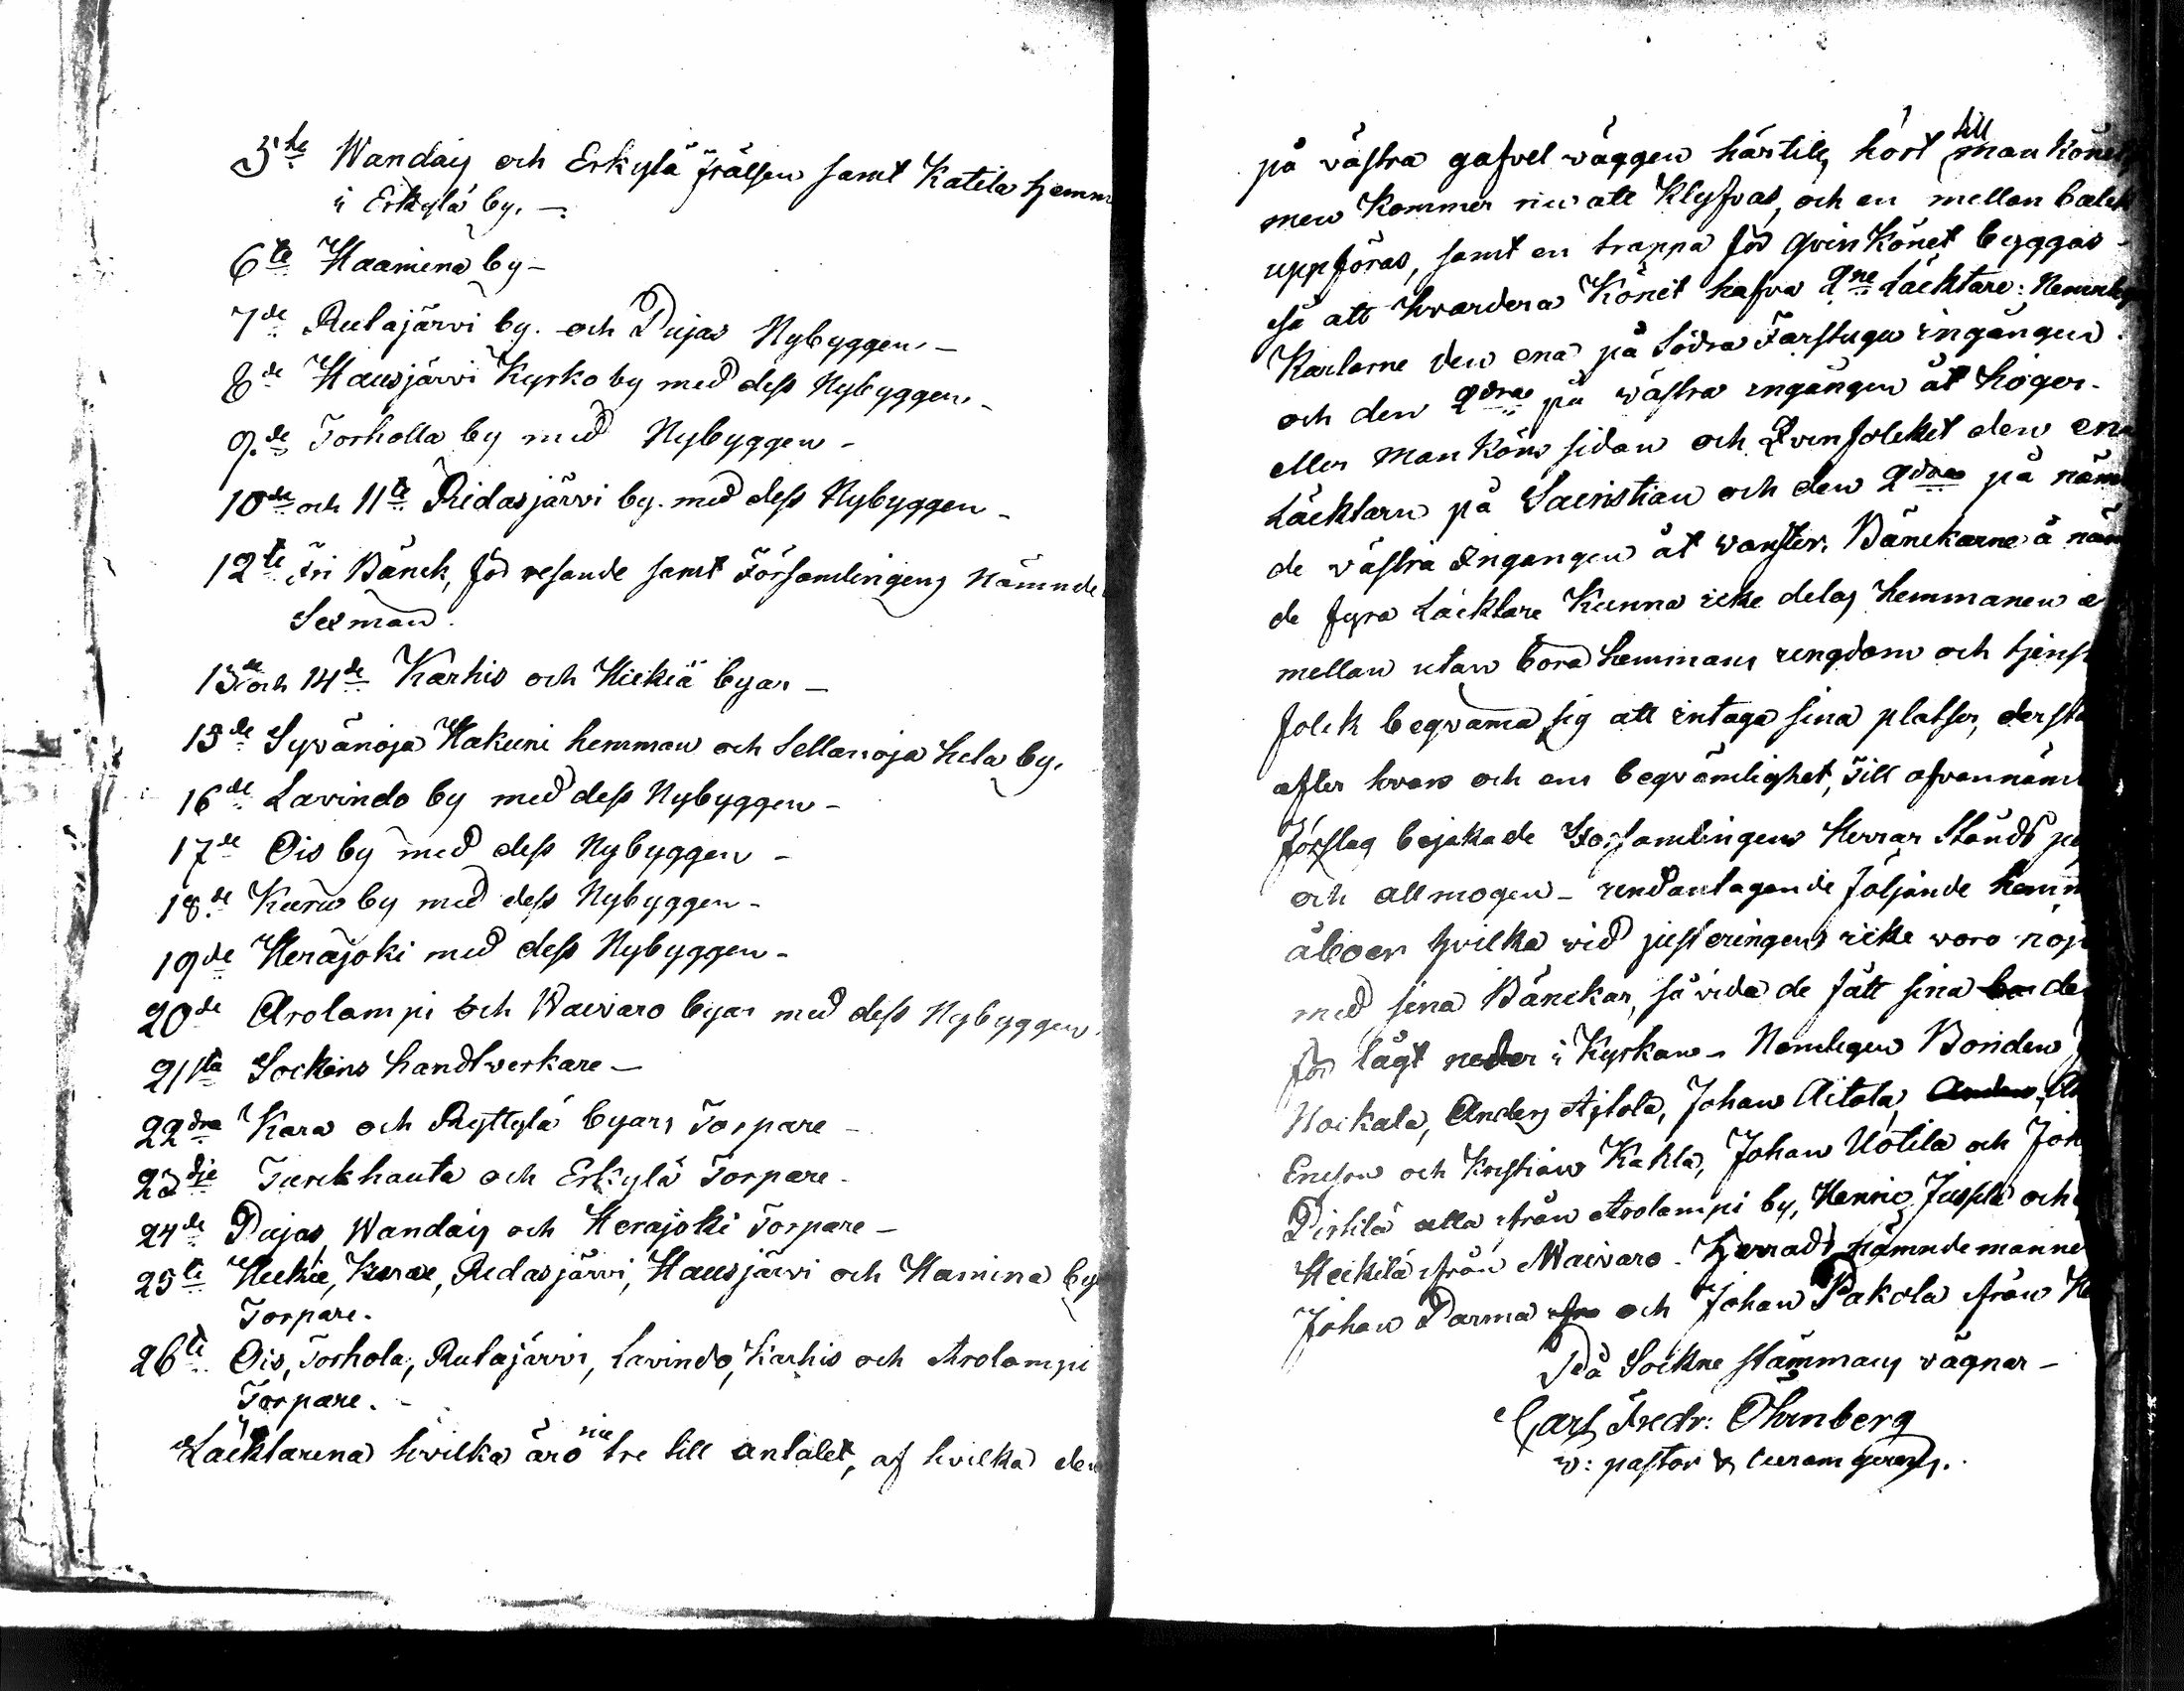 5te Wandais och Erkylä frälsen samt Katila hemm
i Erkylä by. –
6te Haamina by –
7de Rutajärvi by. och Pujas Nybyggen –
8de Hausjärvi Kyrko by med dess Nybyggen –
9de Torholla by med Nybyggen –
10de och 11te Ridasjärvi by. med dess Nybyggen –
12te Fri Bänck, för resande samt Församlingens Nämnde
Sexman.
13de och 14de Karhis och Hickiä byar –
15de Syvänoja Hakuni hemman och Sellanoja hela by.
16de Lavindo by med dess Nybyggen –
17de Ois by med dess Nybyggen –
18de Kuru by med dess Nybyggen –
19de Herajoki med dess Nybyggen –
20de Arolampi och Waivaro byar med dess Nybyggen
21sta Sockens handtverkare –
22dra Kara och Ryttylä byars Torpare –
23dje Turckhauta och Erkylä Torpare –
24de Pujas, Wandais och Herajoki Torpare –
25te Hickiä, Kuru, Ridasjärvi, Hausjärvi och Hamina by
Torpare.
26te Ois, Torhola, Rutajärvi, Lavindo, Karhis och Arolampi
Torpare. –
Läcktarena hvilka äro nu tre till antalet, af hvilka den
på västra gafvel väggen härtils hört till man köne
men kommer nu att Klyfvas, och en mellan balck
uppföras, samt en trappa för qvin Könet byggas –
så att hvardera Könet hafva 2ne Läcktare: Nemlig
Karlarne den ena på Södra Farstugu ingången
och den 2dra på västra ingången åt höger –
eller Man Köns sidan och Qvinfolcket den ena
Läcktarn på Sacristian och den 2dra på näm
de västra Ingången åt vänster. Bänckarne å näm
de fyra Läcktare Kunna icke delas hemmanen e
mellan utan böra hemmans ungdom och tjenst
folck beqväma sig att intaga sina platser, dersta
efter hvars och ens beqvämlighet, Till ofvannäm
förslag bejakade Församlingens Herrar Stånds pe
och allmogen – undantagande följande hemm
åboer hvilka vid justeringen icke voro nöj
med sina Bänckar, så vida de fått sina de
för lågt neder i Kyrkan – Nemligen Bonden
Noikala, Anders Ajtola, Johan Aitola, An
Ericson och Kristian Kakla, Johan Uotila och Joh
Pirhilä alla från Arolampi by, Henric Juspla och
Heickilä från Waivaro. Härads nämndemanne
Johan Parma och Johan Pakola från He
På Sockne stämmans vägnar –
Carl Fredr: Öhrnberg
v: pastor & curam gerens.